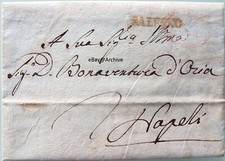 A Sua Sig.ria Ill.ma
eBay Archive
Sig.r D. Bonaventura d'Oria
Napoli